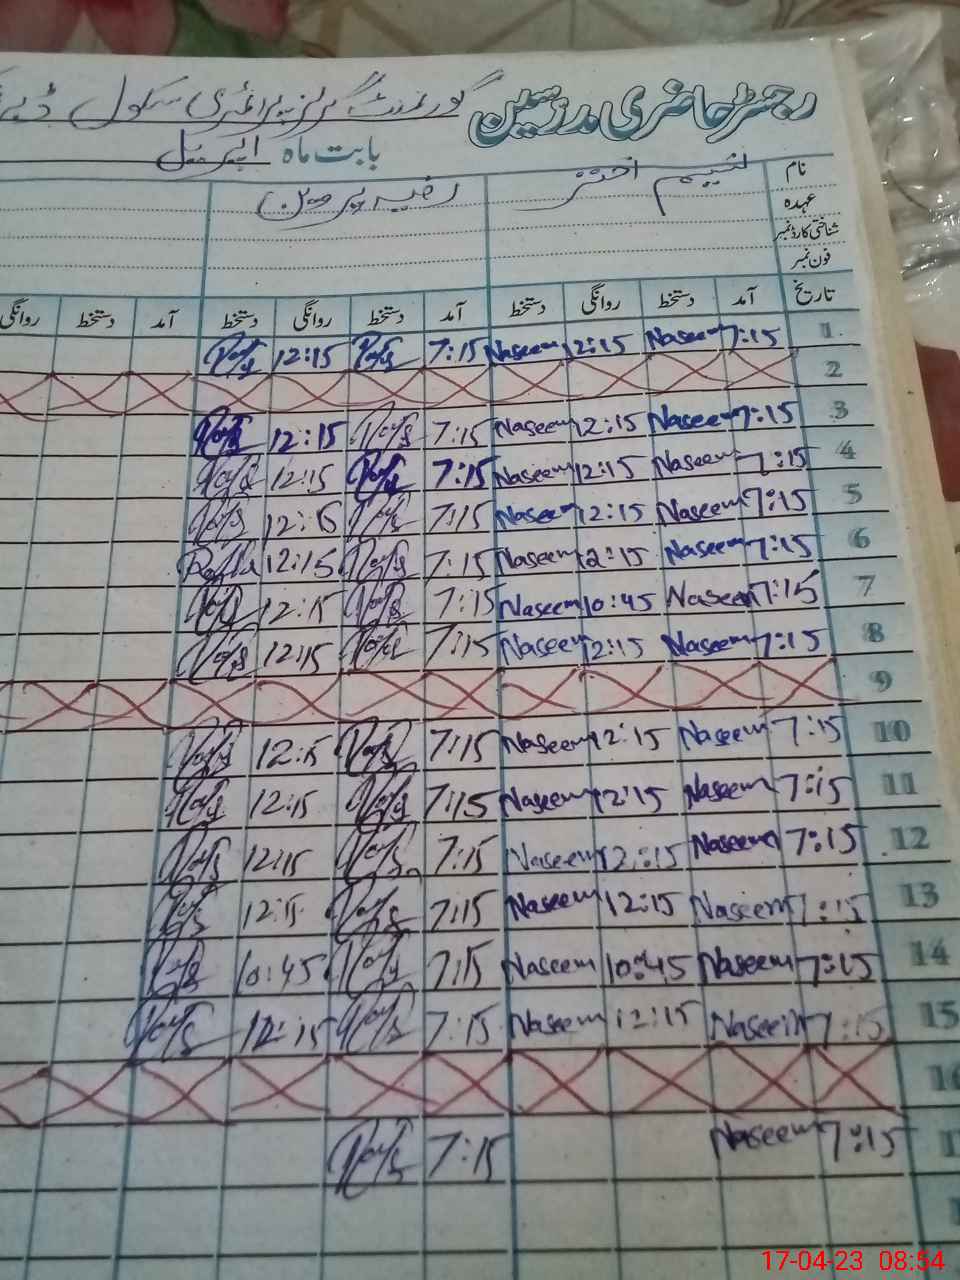 رجسٹر حاضری مدرسین گورنمنٹ گرلز پرائمری سکول
بابت ماہ اپریل
نام نسیم اختر رضیہ پروین
عہدہ
شناختی کارڈ نمبر
فون نمبر
تاریخ آمد دستخط روانگی دستخط آمد دستخط روانگی دستخط آمد دستخط روانگی
1 7:15 Naseem 12:15 Naseem 7:15 12:15
2
3 7:15 Naseem 12:15 Naseem 7:15 12:15
4 7:15 Naseem 12:15 Naseem 7:15 12:15
5 7:15 Naseem 12:15 Naseem 7:15 12:15
6 7:15 Naseem 12:15 Naseem 7:15 12:15
7 7:15 Naseem 10:45 Naseem 7:15 12:15
8 7:15 Naseem 12:15 Naseem 7:15 12:15
9
10 7:15 Naseem 12:15 Naseem 7:15 12:15
11 7:15 Naseem 12:15 Naseem 7:15 12:15
12 7:15 Naseem 12:15 Naseem 7:15 12:15
13 7:15 Naseem 12:15 Naseem 7:15 12:15
14 7:15 Naseem 10:45 Naseem 7:15 10:45
15 7:15 Naseem 12:15 Naseem 7:15 12:15
16
7:15 Naseem 7:15
17-04-23 08:54